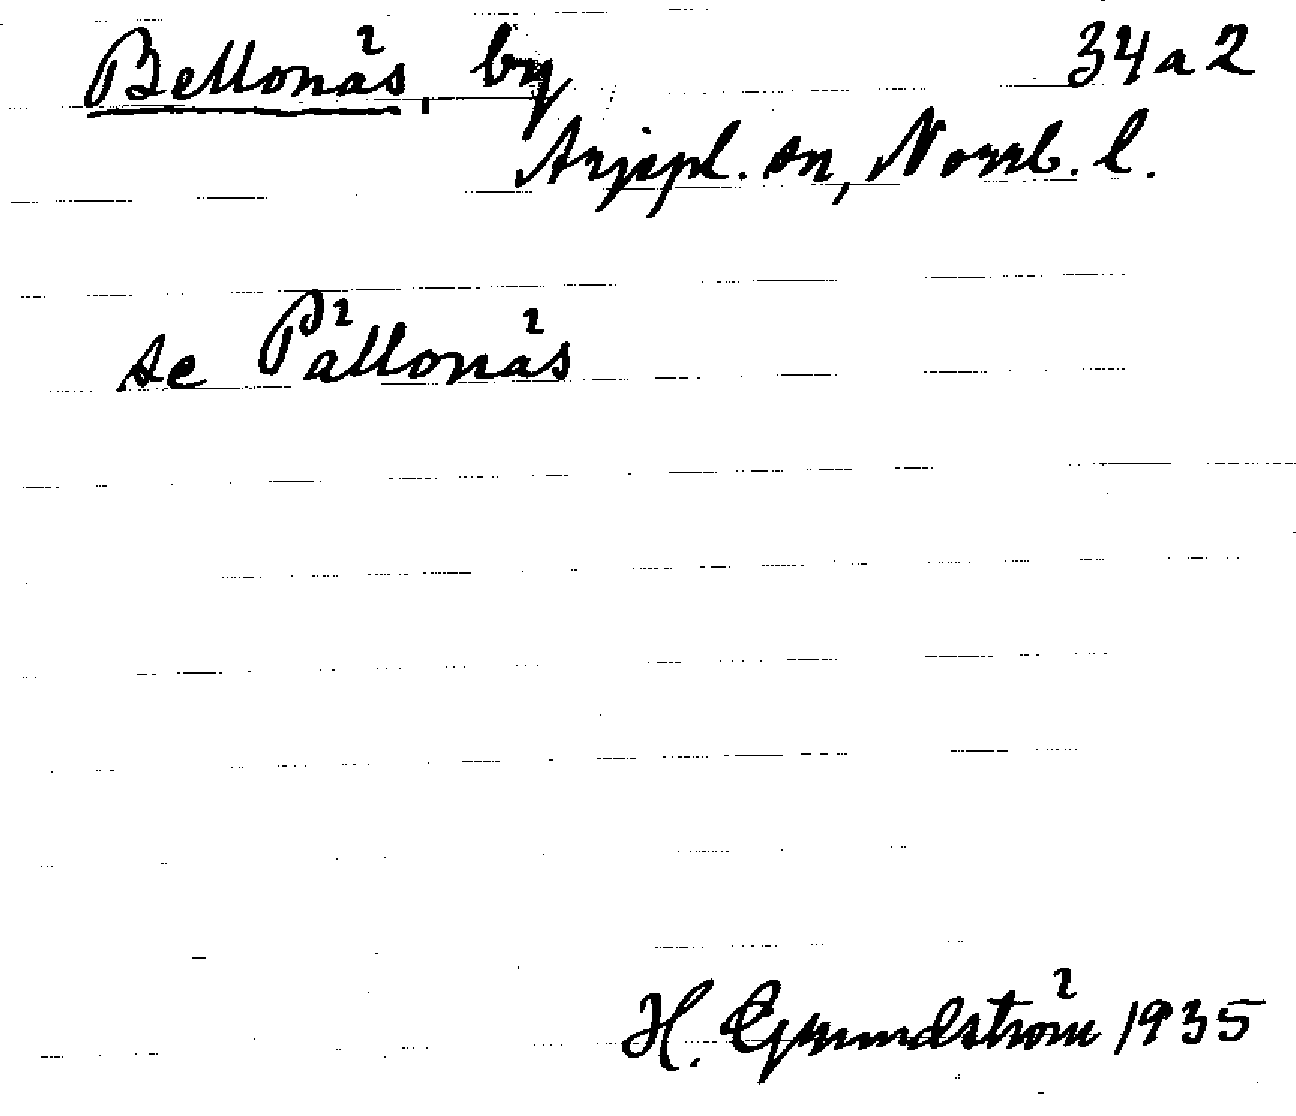 Bellonäs, by 34a2
Arjepl. sn, Norrb. l.
se Pällonäs
H. Grundström 1935